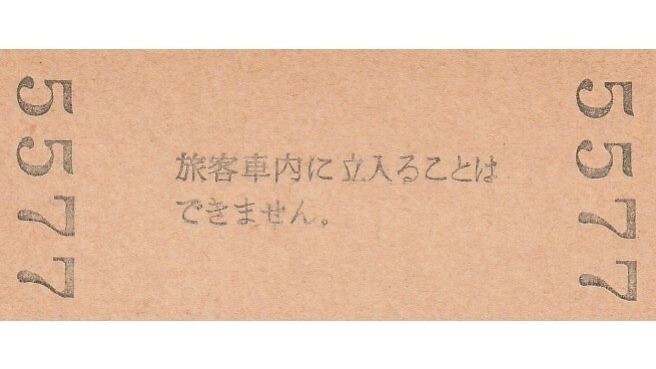 5577
旅客車内に立入ることは
できません。
5577